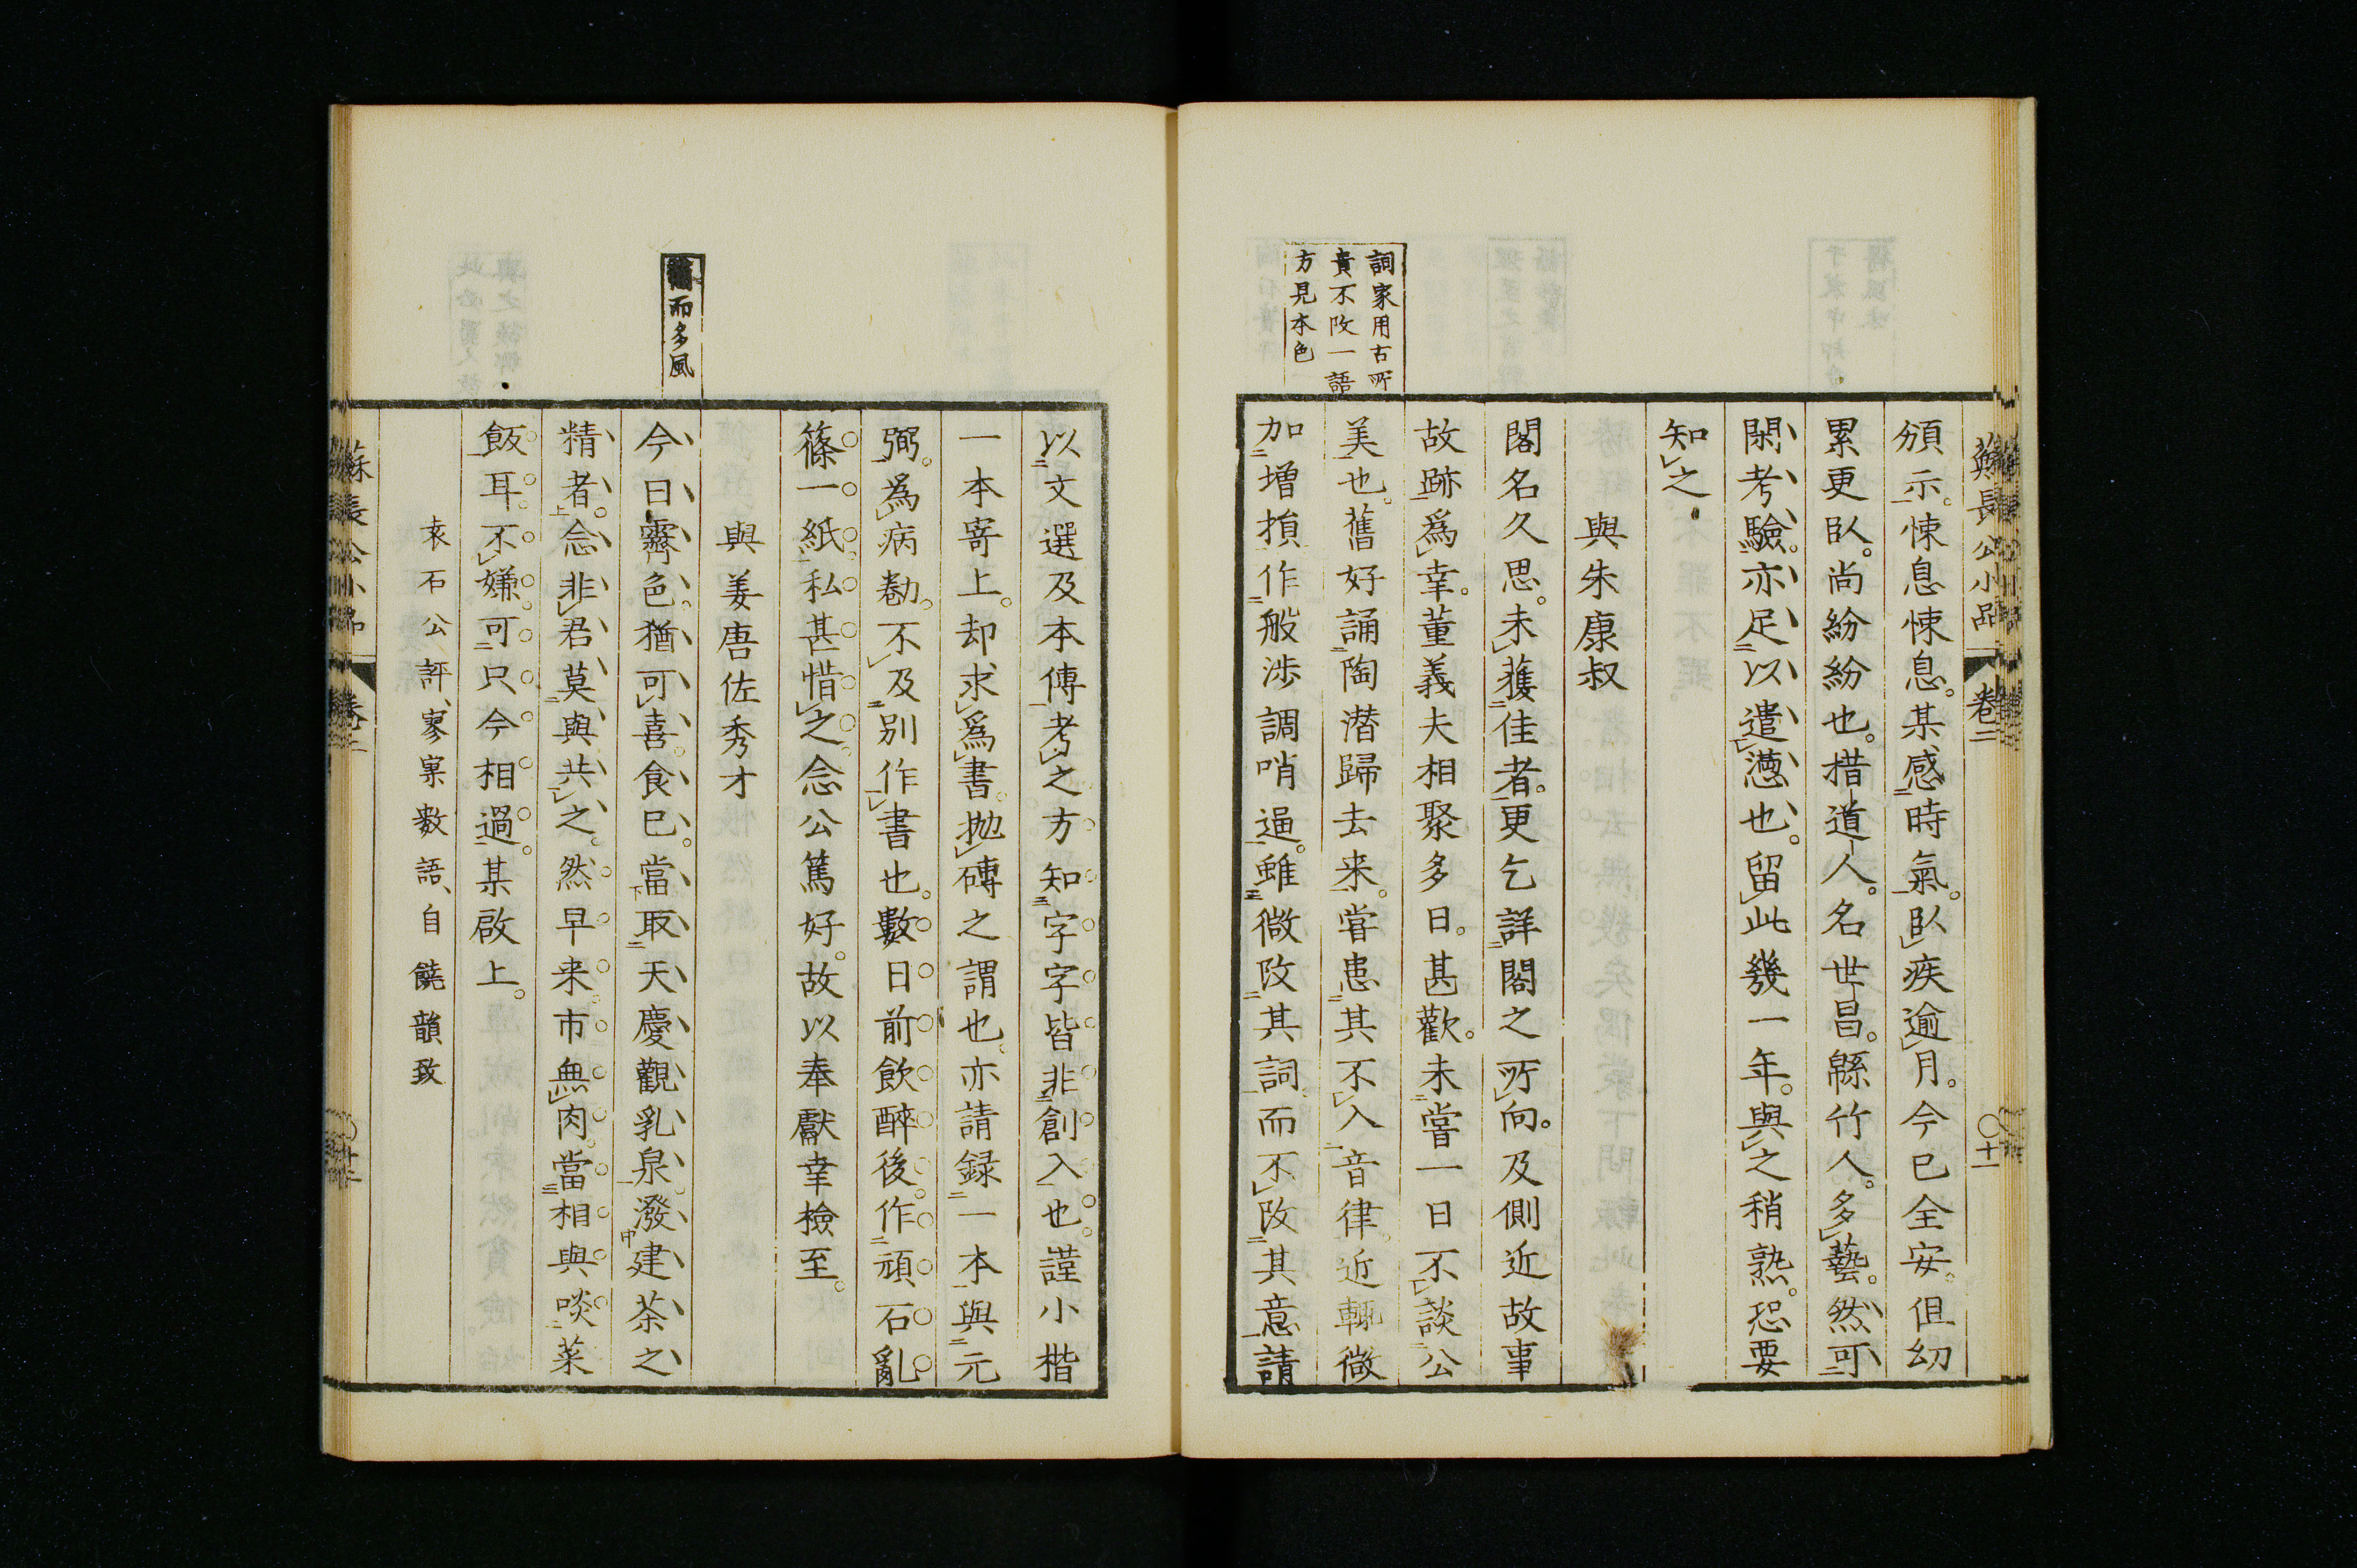 蘇長公小品 卷二 〇十一
頒示。悚息悚息。某感時氣。臥疾逾月。今已全安。但幼
累更臥。尚紛紛也。措道人。名世昌。緜竹人。多藝。然可
閑考驗。亦足以遣懣也。留此幾一年。與之稍熟。恐要
知之。
與朱康叔
閣名久思。未獲佳者。更乞詳閣之所向。及側近故事
故跡為幸。董義夫相聚多日。甚歡。未嘗一日不談公
美也。舊好誦陶潜歸去来。嘗患其不入音律。近輒微
加増損。作般渉調哨遍。雖微改其詞。而不改其意。請
詞家用古所
貴不改一語
方見本色
以文選及本傳考之。方知字字皆非創入也。謹小楷
一本寄上。却求為書。抛磚之謂也。亦請録一本與元
弼。為病勌。不及別作書也。數日前飲醉後。作頑石亂
篠一紙。私甚惜之。念公篤好。故以奉獻。幸檢至。
與姜唐佐秀才
今日霽色。猶可喜。食已。當取天慶觀乳泉。潑建茶之
精者。念非君莫與共之。然早来市無肉。當相與啖菜
飯耳。不嫌。可只今相過。某啟上。
袁石公評、寥寥數語、自饒韻致
而多風
蘇長公小品 卷二